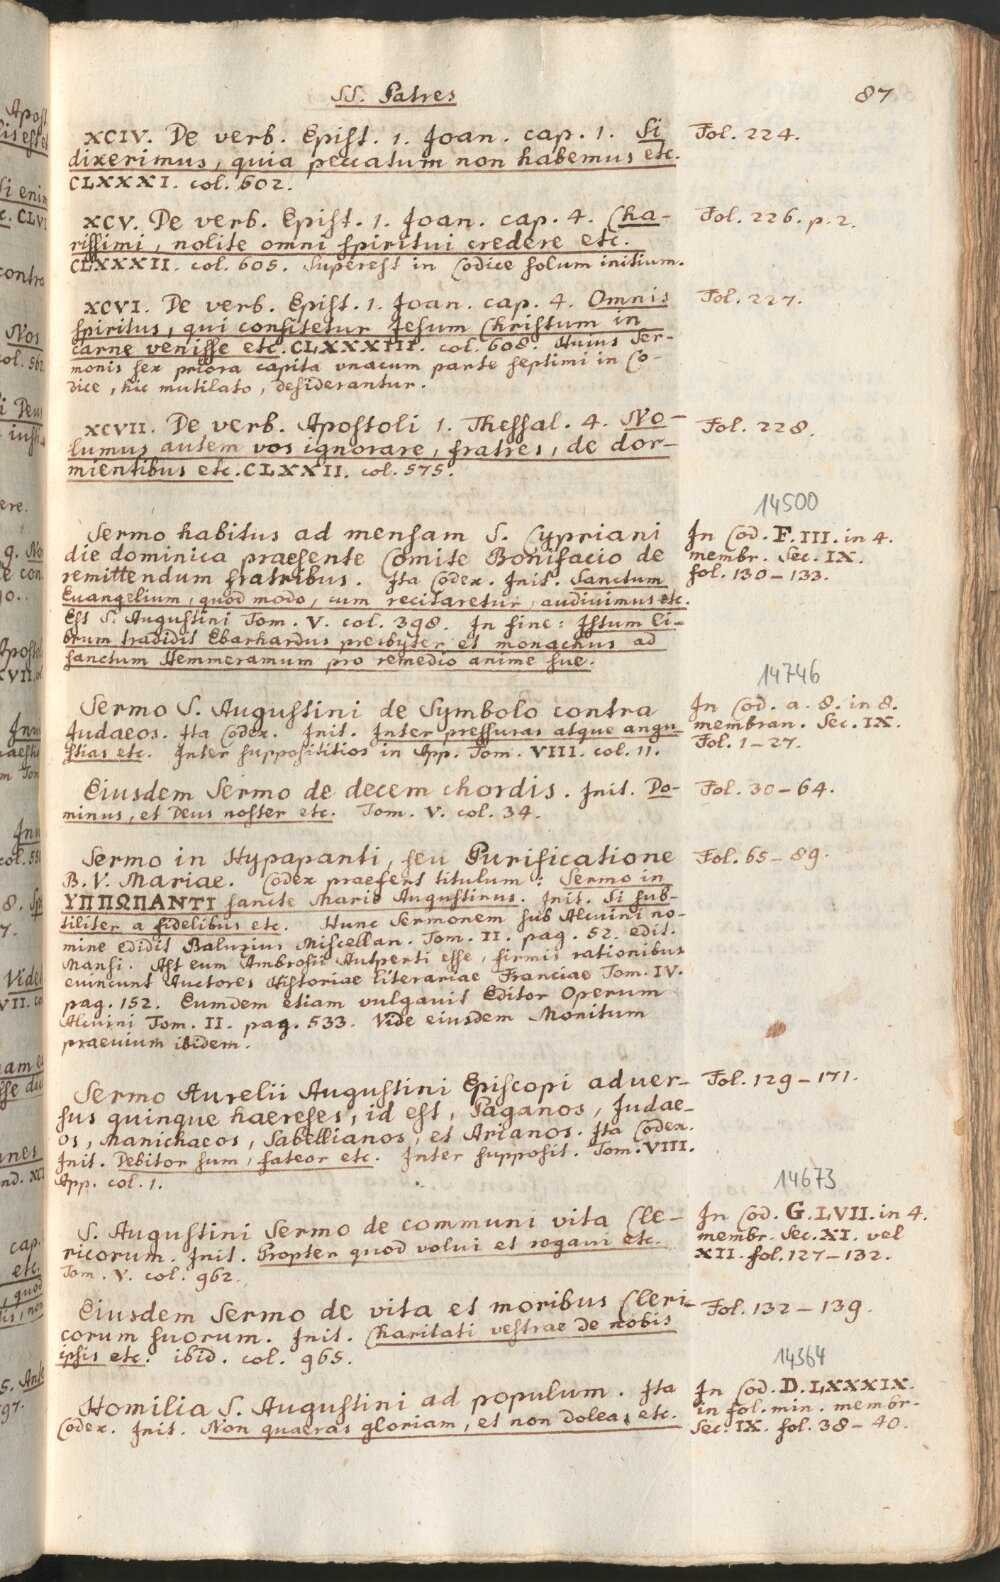 SS. Patres
87
XCIV. De verb. Epist. 1. Joan. cap. 1. Si
dixerimus, quia peccatum non habemus etc.
CLXXXI. col. 602.
Fol. 224.
XCV. De verb. Epist. 1. Joan. cap. 4. Cha-
rissimi, nolite omni spiritui credere etc.
CLXXXII. col. 605. Superest in Codice solum initium.
Fol. 226. p. 2.
XCVI. De verb. Epist. 1. Joan. cap. 4. Omnis
spiritus, qui confitetur Jesum Christum in
carne venisse etc. CLXXXIII. col. 608. Huius Ser-
monis sex priora capita vnacum parte septimi in Co-
dice, hic mutilato, desiderantur.
Fol. 227.
XCVII. De verb. Apostoli 1. Thessal. 4. No-
lumus autem vos ignorare, fratres, de dor-
mientibus etc. CLXXII. col. 575.
Fol. 228.
14500
Sermo habitus ad mensam S. Cypriani
die dominica praesente Comite Bonifacio de
remittendum fratribus. Ita Codex. Init. Sanctum
Euangelium, quod modo, cum recitaretur, audiuimus etc.
Est S. Augustini Tom. V. col. 398. In fine: Istum li-
brum tradidit Ebarhardus presbyter et monachus ad
sanctum Hemmeramum pro remedio anime sue.
In Cod. F. III. in 4.
membr. Sec. IX.
fol. 130-133.
14746
Sermo S. Augustini de Symbolo contra
Judaeos. Ita Codex. Init. Inter pressuras atque angu-
stias etc. Inter supposititios in App. Tom. VIII. col. 11.
In Cod. a. 8. in 8.
membran. Sec. IX.
Fol. 1-27.
Eiusdem Sermo de decem chordis. Init. Do-
minus, et Deus noster etc. Tom. V. col. 34.
Fol. 30-64.
Sermo in Hypapanti, seu Purificatione
B. V. Mariae. Codex praefert titulum: Sermo in
ΥΠΠΩΠΑΝΤΙ sancte Marie Augustinus. Init. Si sub-
tiliter a fidelibus etc. Hunc Sermonem sub Alcuini no-
mine edidit Baluzius Miscellan. Tom. II. pag. 52. edit.
Mansi. Ast eum Ambrosii Autperti esse, firmis rationibus
euincunt Auctores Historiae literariae Franciae Tom. IV.
pag. 152. Eumdem etiam vulgauit Editor Operum
Alcuini Tom. II. pag. 533. Vide eiusdem Monitum
praeuium ibidem.
Fol. 65-89.
Sermo Aurelii Augustini Episcopi aduer-
sus quinque haereses, id est, Paganos, Judae-
os, Manichaeos, Sabellianos, et Arianos. Ita Codex.
Init. Debitor sum, fateor etc. Inter supposit. Tom. VIII.
App. col. 1.
Fol. 129-171.
14673
S. Augustini Sermo de communi vita Cle-
ricorum. Init. Propter quod volui et rogaui etc.
Tom. V. col. 962.
In Cod. G. LVII. in 4.
membr. Sec. XI. vel
XII. fol. 127-132.
Eiusdem Sermo de vita et moribus Cleri-
corum suorum. Init. Charitati vestrae de nobis
ipsis etc. ibid. col. 965.
Fol. 132-139.
14364
Homilia S. Augustini ad populum. Ita
Codex. Init. Non quaeras gloriam, et non doleas etc.
In Cod. D. LXXXIX.
in fol. min. membr.
Sec. IX. fol. 38-40.